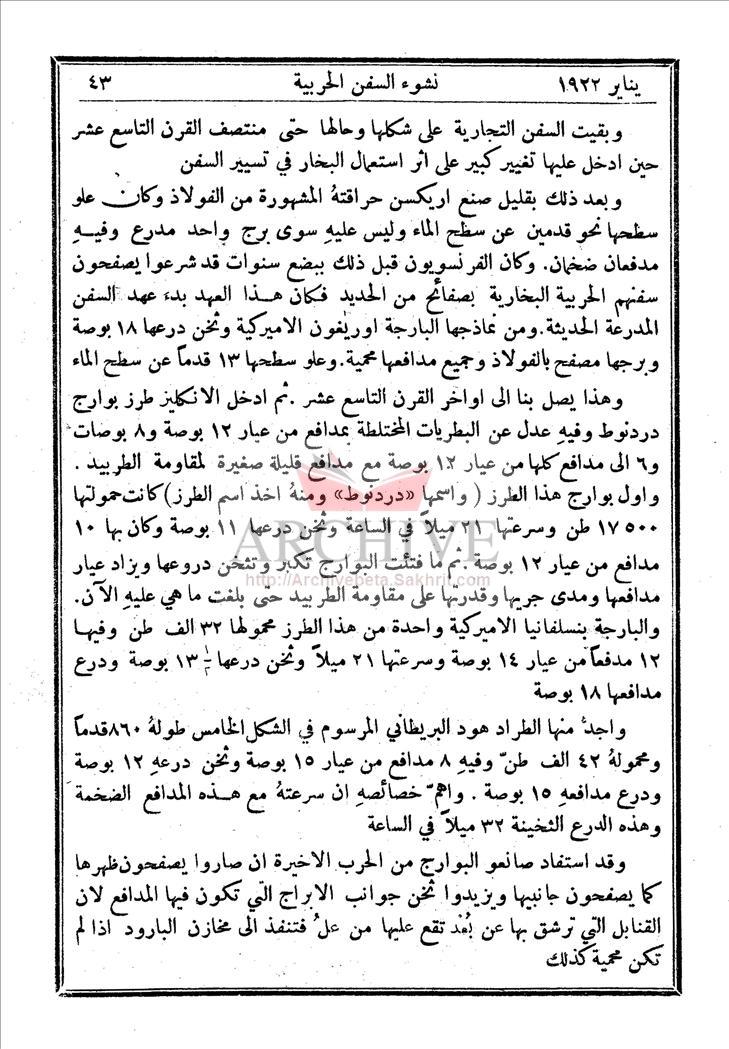 يناير ١٩٢٢ نشوء السفن الحربية ٤٣
وبقيت السفن التجارية على شكلها وحالها حتى منتصف القرن التاسع عشر
حين ادخل عليها تغيير كبير على اثر استعمال البخار في تسيير السفن
وبعد ذلك بقليل صنع اريكسن حراقتهُ المشهورة من الفولاذ وكان علو
سطحها نحو قدمين عن سطح الماء وليس عليهِ سوى برج واحد مدرع وفيهِ
مدفعان ضخمان. وكان الفرنسويون قبل ذلك ببضع سنوات قد شرعوا يصفحون
سفنهم الحربية البخارية بصفائح من الحديد فكان هذا العهد بدء عهد السفن
المدرعة الحديثة. ومن نماذجها البارجة اوريغون الاميركية وثخن درعها ١٨ بوصة
وبرجها مصفح بالفولاذ وجميع مدافعها محمية. وعلو سطحها ١٣ قدماً عن سطح الماء
وهذا يصل بنا الى اواخر القرن التاسع عشر. ثم ادخل الانكليز طرز بوارج
دردنوط وفيهِ عدل عن البطريات المختلطة بمدافع من عيار ١٢ بوصة و٨ بوصات
و٦ الى مدافع كلها من عيار ١٢ بوصة مع مدافع قليلة صغيرة لمقاومة الطربيد.
واول بوارج هذا الطرز (واسمها «دردنوط» ومنهُ اخذ اسم الطرز) كانت حمولتها
١٧٥٠٠ طن وسرعتها ٢١ ميلاً في الساعة وثخن درعها ١١ بوصة وكان بها ١٠
مدافع من عيار ١٢ بوصة. ثم ما فتئت البوارج تكبر وتثخن دروعها ويزاد عيار
مدافعها ومدى جريها وقدرتها على مقاومة الطربيد حتى بلغت ما هي عليهِ الآن.
والبارجة بنسلفانيا الاميركية واحدة من هذا الطرز محمولها ٣٢ الف طن وفيها
١٢ مدفعاً من عيار ١٤ بوصة وسرعتها ٢١ ميلاً وثخن درعها ١٣ بوصة ودرع
مدافعها ١٨ بوصة
واجدُّ منها الطراد هود البريطاني المرسوم في الشكل الخامس طولهُ ٨٦٠ قدماً
ومحمولهُ ٤٢ الف طنّ وفيهِ ٨ مدافع من عيار ١٥ بوصة وثخن درعهِ ١٢ بوصة
ودرع مدافعهِ ١٥ بوصة. واهمّ خصائصهِ ان سرعتهُ مع هذه المدافع الضخمة
وهذه الدرع الثخينة ٣٢ ميلاً في الساعة
وقد استفاد صانعو البوارج من الحرب الاخيرة ان صاروا يصفحون ظهرها
كما يصفحون جانبيها ويزيدوا ثخن جوانب الابراج التي تكون فيها المدافع لان
القنابل التي ترشق بها عن بُعْد تقع عليها من علُ فتنفذ الى مخازن البارود اذا لم
تكن محمية كذلك
ARCHIVE
http://Archivebeta.Sakhrit.com